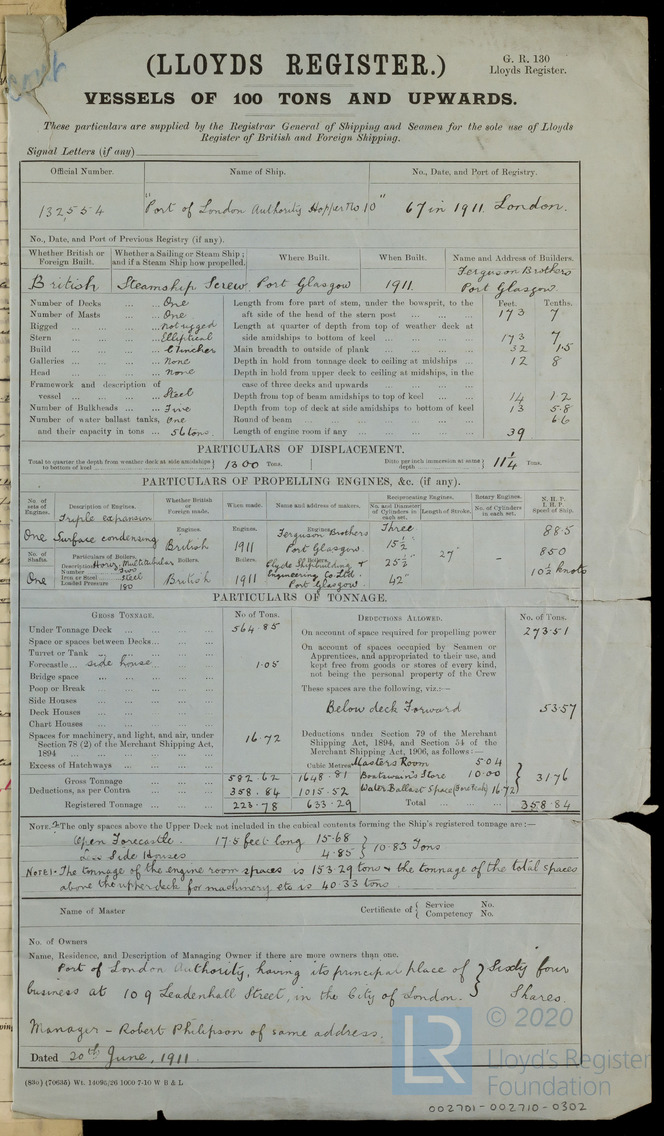 G. R. 130
Lloyds Register.
(LLOYDS REGISTER.)
VESSELS OF 100 TONS AND UPWARDS.
These particulars are supplied by the Registrar General of Shipping and Seamen for the sole use of Lloyds
Register of British and Foreign Shipping.
Signal Letters (if any)
Official Number. Name of Ship. No., Date, and Port of Registry.
132,554 "Port of London Authority Hopper No 10" 67 in 1911 London.
No., Date, and Port of Previous Registry (if any).
Whether British or Foreign Built. Whether a Sailing or Steam Ship; and if a Steam Ship how propelled. Where Built. When Built. Name and Address of Builders.
British Steamship Screw Port Glasgow 1911 Ferguson Brothers Port Glasgow
Number of Decks ... ... One
Number of Masts ... ... One
Rigged ... ... ... Not rigged
Stern ... ... ... Elliptical
Build ... ... ... Clincher
Galleries ... ... ... None
Head ... ... ... None
Framework and description of
vessel ... ... ... Steel
Number of Bulkheads ... ... Five
Number of water ballast tanks, One
and their capacity in tons ... 56 tons
Feet. Tenths.
Length from fore part of stem, under the bowsprit, to the
aft side of the head of the stern post ... ... ... 173 7
Length at quarter of depth from top of weather deck at
side amidships to bottom of keel ... ... ... 173 7
Main breadth to outside of plank ... ... ... 32 1.5
Depth in hold from tonnage deck to ceiling at midships ... 12 8
Depth in hold from upper deck to ceiling at midships, in the
case of three decks and upwards ... ... ...
Depth from top of beam amidships to top of keel ... ... 14 12
Depth from top of deck at side amidships to bottom of keel 13 5.8
Round of beam ... ... ... 66
Length of engine room if any ... ... ... 39
PARTICULARS OF DISPLACEMENT.
Total to quarter the depth from weather deck at side amidships to bottom of keel 1300 Tons. Ditto per inch immersion at same depth 11 1/4 Tons.
PARTICULARS OF PROPELLING ENGINES, &c. (if any).
No. of sets of Engines. Description of Engines. Whether British or Foreign made. When made. Name and address of makers. Reciprocating Engines. Rotary Engines. N. H. P. I. H. P. Speed of Ship.
No. and Diameter of Cylinders in each set. Length of Stroke. No. of Cylinders in each set.
One Triple expansion Surface condensing Engines. British Engines. 1911 Engines. Ferguson Brothers Port Glasgow. Three 15½" 25½" 42" 27" - 885
850
10½ knots
No. of Shafts. Particulars of Boilers. Boilers. Boilers. Boilers.
One Description Horiz. Multitubular
Number Two
Iron or Steel Steel
Loaded Pressure 180
British 1911 Clyde Shipbuilding & Engineering Co Ltd. Port Glasgow
PARTICULARS OF TONNAGE.
GROSS TONNAGE. No of Tons.
Under Tonnage Deck ... ... 564.85
Space or spaces between Decks... ... ...
Turret or Tank ... ... ...
Forecastle... side house ... 1.05
Bridge space ... ... ...
Poop or Break ... ... ...
Side Houses ... ... ...
Deck Houses ... ... ...
Chart Houses ... ... ...
Spaces for machinery, and light, and air, under
Section 78 (2) of the Merchant Shipping Act,
1894 ... ... ... 16.72
Excess of Hatchways ... ... ...
Cubic Metres
Gross Tonnage ... ... 582.62 1648.81
Deductions, as per Contra ... ... 358.84 1015.52
Registered Tonnage ... ... 223.78 633.29
DEDUCTIONS ALLOWED. No. of Tons.
On account of space required for propelling power 273.51
On account of spaces occupied by Seamen or
Apprentices, and appropriated to their use, and
kept free from goods or stores of every kind,
not being the personal property of the Crew
These spaces are the following, viz.:—
Below deck Forward 53.57
Deductions under Section 79 of the Merchant
Shipping Act, 1894, and Section 54 of the
Merchant Shipping Act, 1906, as follows:—
Masters Room 5.04
Boatswain's Store 10.00
Water Ballast Space (Forepeak) 16.72 31.76
Total ... ... 358.84
NOTE.2—The only spaces above the Upper Deck not included in the cubical contents forming the Ship's registered tonnage are:—
Open Forecastle. 17.5 feet long 15.68
Less Side Houses 4.85 } 10.83 Tons
NOTE 1. The tonnage of the engine room spaces is 153.29 tons & the tonnage of the total spaces
above the upper deck for machinery etc is 40.33 tons
Name of Master Certificate of { Service No.
Competency No.
No. of Owners
Name, Residence, and Description of Managing Owner if there are more owners than one.
Port of London Authority, having its principal place of } Sixty four
business at 109 Leadenhall Street, in the City of London. Shares.
Manager - Robert Philipson of same address.
Dated 20th June, 1911.
(830) (70635) Wt. 14096/26 1000 7-10 W B & L
LR
© 2020
Lloyd's Register
Foundation
002701-002710-0302